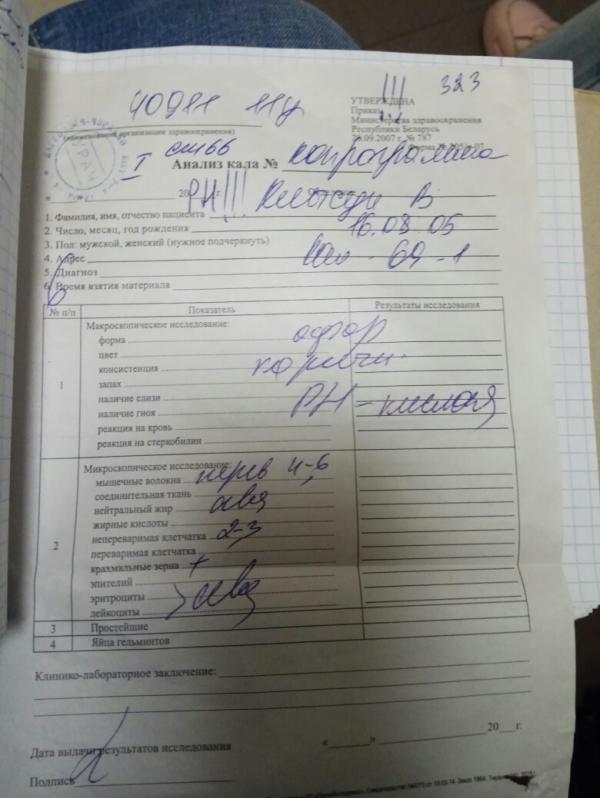 323
УТВЕРЖДЕНА
Приказ
Министерства здравоохранения
Республики Беларусь
20.09.2007 г. № 787
(наименование организации здравоохранения)
Анализ кала № копрограмма
20 г.
PH!!!
1. Фамилия, имя, отчество пациента В
2. Число, месяц, год рождения 16.08 05
3. Пол: мужской, женский (нужное подчеркнуть)
4. Адрес 69-1
5. Диагноз
6. Время взятия материала
№ п/п Показатель Результаты исследования
1
Макроскопическое исследование:
форма офор
цвет
консистенция коричн.
запах
наличие слизи PH - кислая
наличие гноя
реакция на кровь
реакция на стеркобилин
2
Микроскопическое исследование:
мышечные волокна перев 4-6
соединительная ткань
нейтральный жир
жирные кислоты
непереваримая клетчатка 2-3
переваримая клетчатка
крахмальные зерна +
эпителий
эритроциты
лейкоциты
3 Простейшие
4 Яйца гельминтов
Клинико-лабораторное заключение:
« » 20 г.
Дата выдачи результатов исследования
Подпись